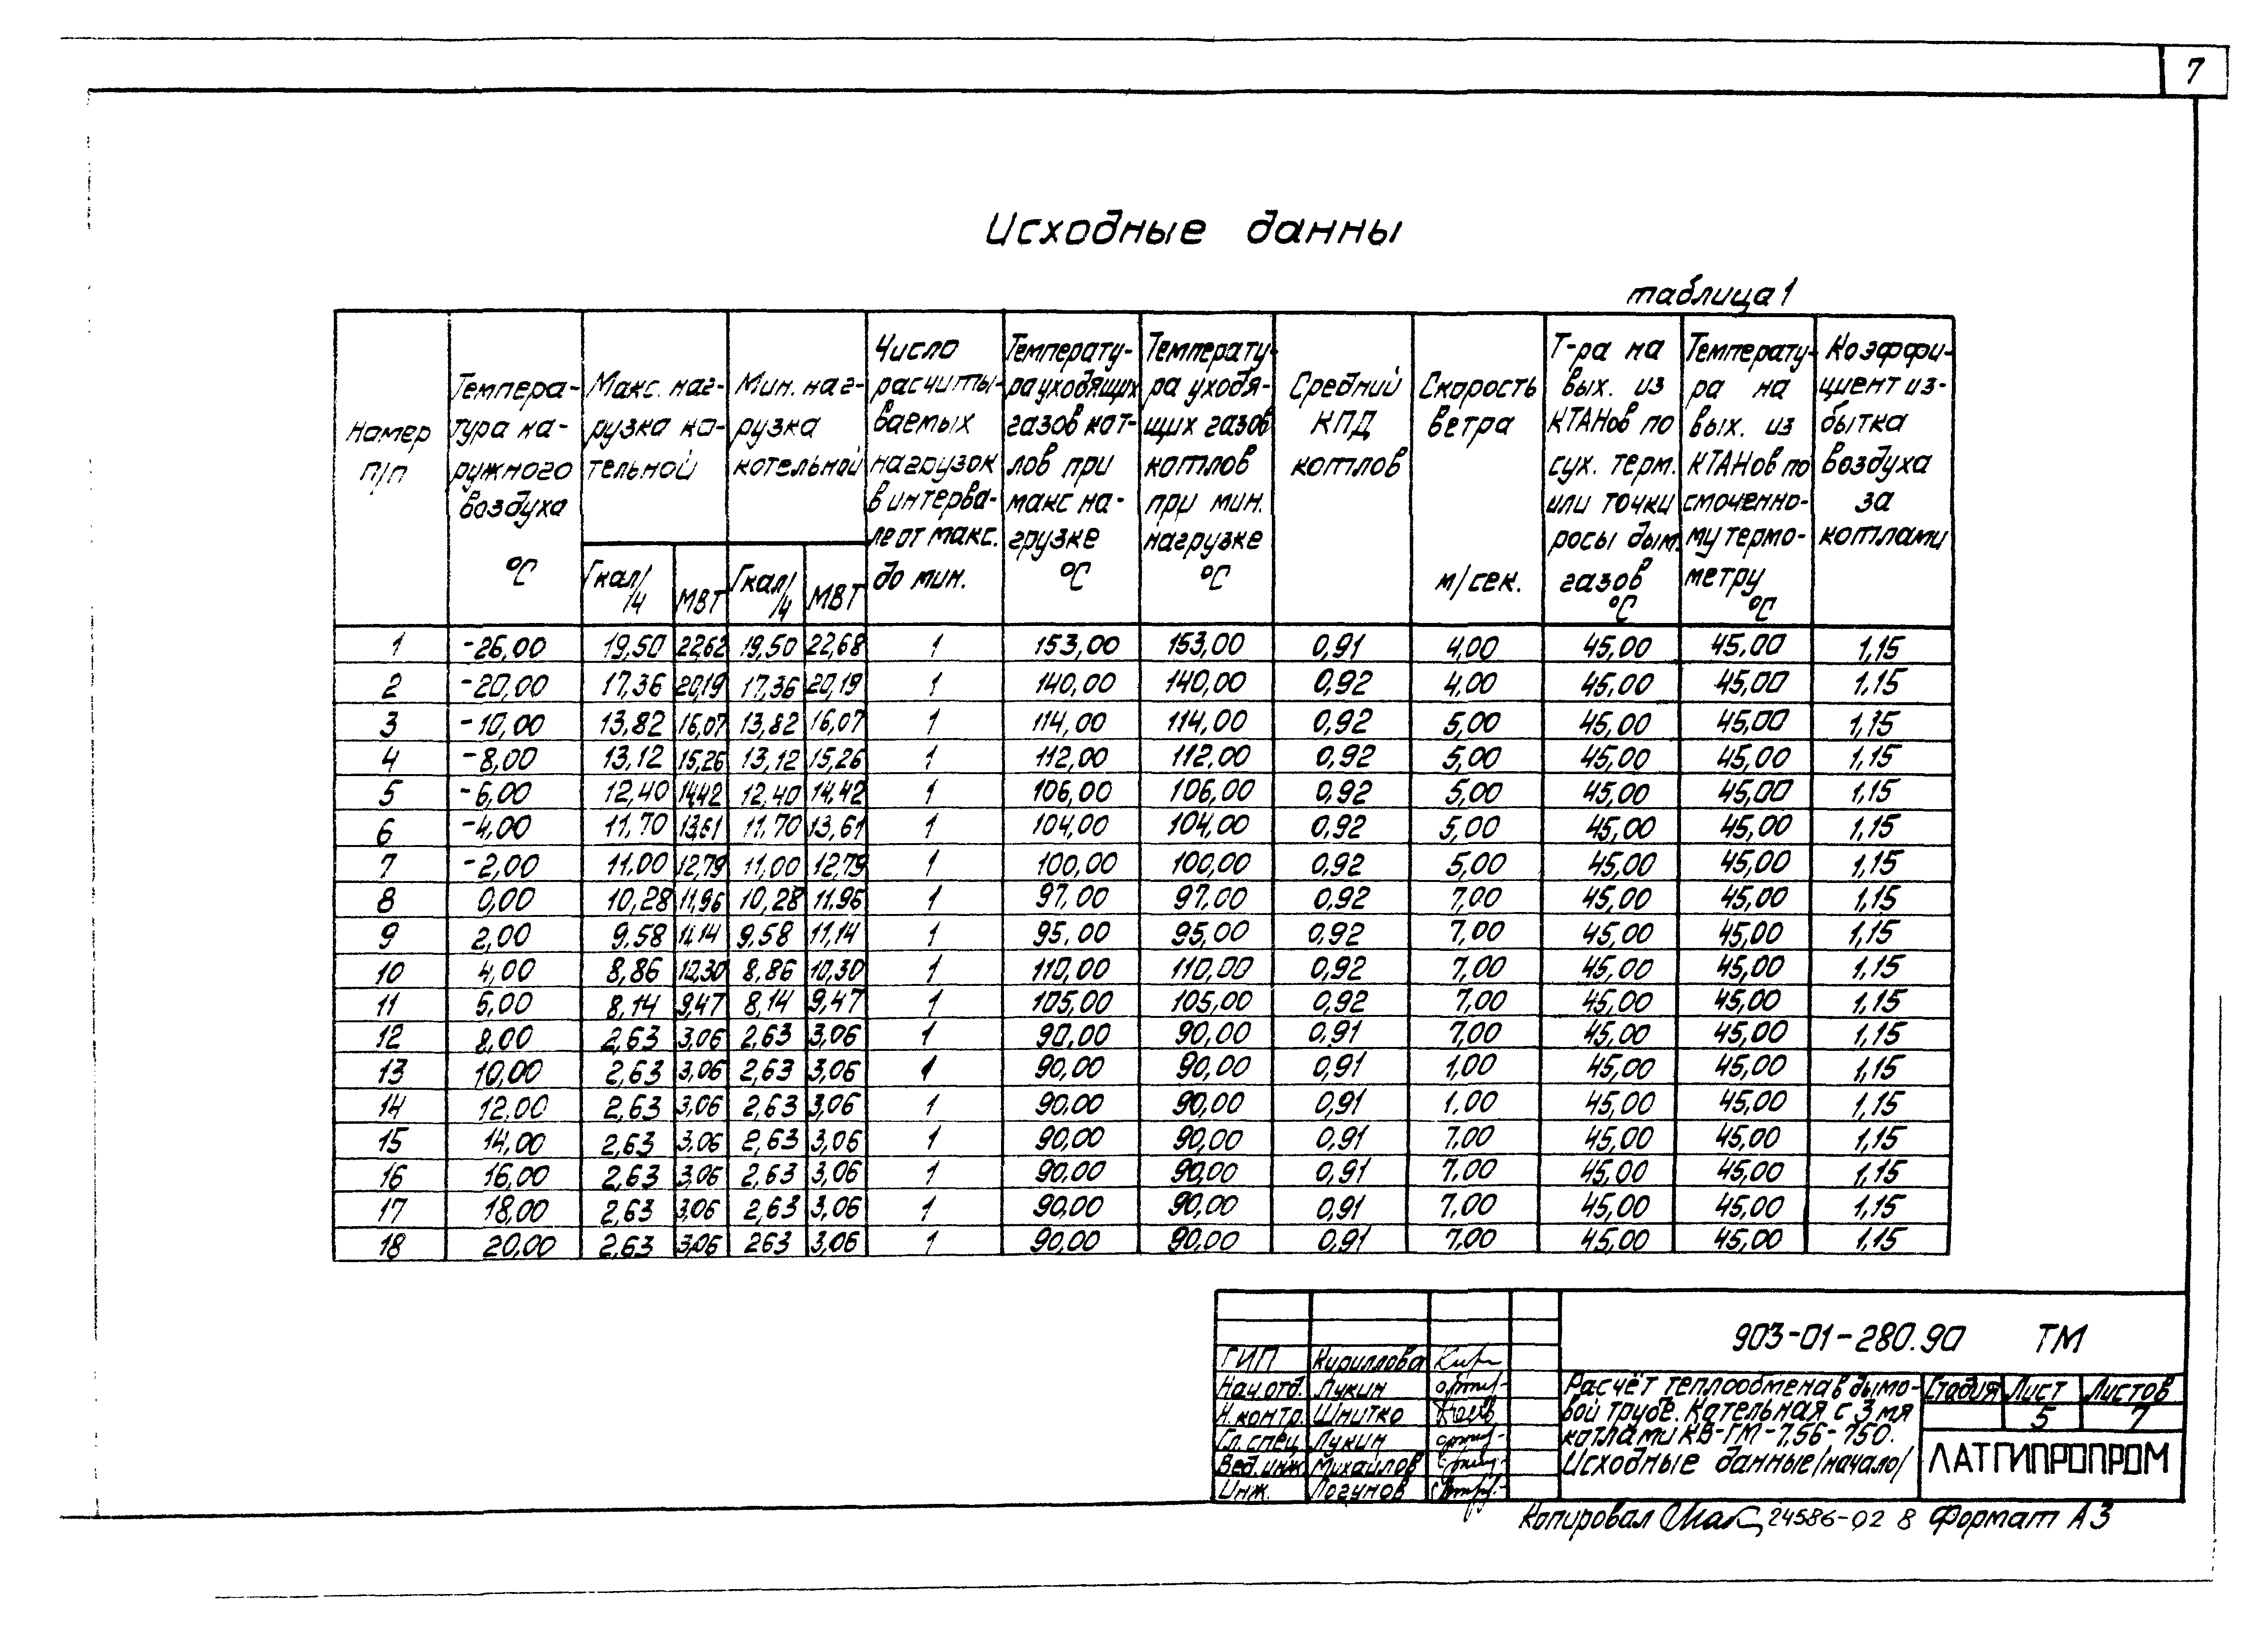 7
Исходные данны
таблица 1
Номер п/п | Температура наружного воздуха °С | Макс. нагрузка котельной Гкал/ч | МВТ | Мин. нагрузка котельной Гкал/ч | МВТ | Число расчитываемых нагрузок в интервале от макс. до мин. | Температура уходящих газов котлов при макс нагрузке °С | Температура уходящих газов котлов при мин. нагрузке °С | Средний КПД котлов | Скорость ветра м/сек. | Т-ра на вых. из КТАНов по сух. терм. или точки росы дым. газов °С | Температура на вых. из КТАНов по смоченному термометру °С | Коэффициент избытка воздуха за котлами
1 -26,00 19,50 22,62 19,50 22,68 1 153,00 153,00 0,91 4,00 45,00 45,00 1,15
2 -20,00 17,36 20,19 17,36 20,19 1 140,00 140,00 0,92 4,00 45,00 45,00 1,15
3 -10,00 13,82 16,07 13,82 16,07 1 114,00 114,00 0,92 5,00 45,00 45,00 1,15
4 -8,00 13,12 15,26 13,12 15,26 1 112,00 112,00 0,92 5,00 45,00 45,00 1,15
5 -6,00 12,40 14,42 12,40 14,42 1 106,00 106,00 0,92 5,00 45,00 45,00 1,15
6 -4,00 11,70 13,61 11,70 13,61 1 104,00 104,00 0,92 5,00 45,00 45,00 1,15
7 -2,00 11,00 12,79 11,00 12,79 1 100,00 100,00 0,92 5,00 45,00 45,00 1,15
8 0,00 10,28 11,96 10,28 11,96 1 97,00 97,00 0,92 7,00 45,00 45,00 1,15
9 2,00 9,58 11,14 9,58 11,14 1 95,00 95,00 0,92 7,00 45,00 45,00 1,15
10 4,00 8,86 10,30 8,86 10,30 1 110,00 110,00 0,92 7,00 45,00 45,00 1,15
11 6,00 8,14 9,47 8,14 9,47 1 105,00 105,00 0,92 7,00 45,00 45,00 1,15
12 8,00 2,63 3,06 2,63 3,06 1 90,00 90,00 0,91 7,00 45,00 45,00 1,15
13 10,00 2,63 3,06 2,63 3,06 1 90,00 90,00 0,91 1,00 45,00 45,00 1,15
14 12.00 2,63 3,06 2,63 3,06 1 90,00 90,00 0,91 1.00 45,00 45,00 1,15
15 14,00 2,63 3,06 2,63 3,06 1 90,00 90,00 0,91 7.00 45,00 45,00 1,15
16 16,00 2,63 3,06 2,63 3,06 1 90,00 90,00 0,91 7.00 45,00 45,00 1,15
17 18,00 2,63 3,06 2,63 3,06 1 90,00 90,00 0,91 7,00 45,00 45,00 1,15
18 20,00 2,63 3,06 263 3,06 1 90,00 90,00 0,91 7,00 45,00 45,00 1,15
903-01-280.90 ТМ
ГИП Кириллова
Нач.отд. Лукин
Н.контр. Шнитко
Гл.спец. Лукин
Вед.инж. Михайлов
Инж. Логунов
Расчёт теплообмена в дымо-
вой трубе. Котельная с 3 мя
котлами КВ-ГМ-7,56-150.
Исходные данные /начало/
Стадия Лист Листов
5 7
ЛАТГИПРОПРОМ
Копировал 24586-02 8 Формат А3